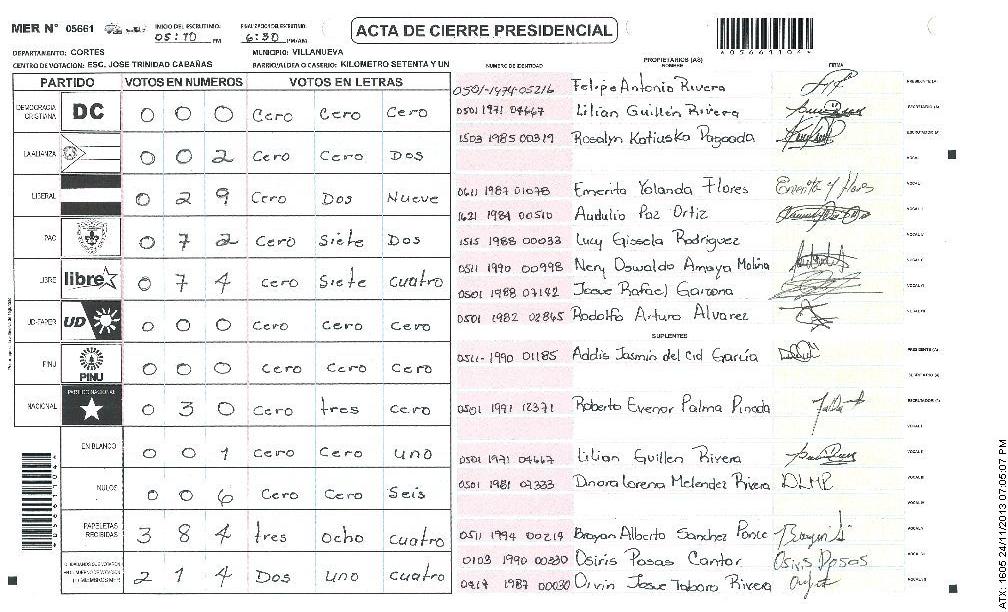 MER N° 05661 INICIO DEL ESCRUTINIO: 05:10 PM FINALIZACION DEL ESCRUTINIO: 6:30 PM/AM
ACTA DE CIERRE PRESIDENCIAL
DEPARTAMENTO: CORTES MUNICIPIO: VILLANUEVA
CENTRO DE VOTACION: ESC. JOSE TRINIDAD CABAÑAS BARRIO/ALDEA O CASERIO: KILOMETRO SETENTA Y UN
PARTIDO VOTOS EN NUMEROS VOTOS EN LETRAS
DEMOCRACIA CRISTIANA DC 0 0 0 Cero Cero Cero
LA ALIANZA 0 0 2 Cero Cero Dos
LIBERAL 0 2 9 Cero Dos Nueve
PAC 0 7 2 Cero Siete Dos
LIBRE libre 0 7 4 Cero Siete cuatro
UD-FAPER UD 0 0 0 Cero Cero Cero
PINU PINU 0 0 0 Cero Cero Cero
NACIONAL PARTIDO NACIONAL 0 3 0 Cero tres cero
EN BLANCO 0 0 1 Cero Cero uno
NULOS 0 0 6 Cero Cero Seis
PAPELETAS RECIBIDAS 3 8 4 tres ocho cuatro
2 1 4 Dos uno cuatro
NUMERO DE IDENTIDAD PROPIETARIOS (AS) NOMBRE FIRMA
0501-1974-05216 Felipe Antonio Rivera
0501 1971 04667 Lilian Guillén Rivera
1503 1985 00319 Rosalyn Katiuska Pagoada
0611 1987 01078 Emerita Yolanda Flores Emerita y flores
1621 1984 00510 Audulio Paz Ortiz
1515 1988 00033 Lucy Gissela Rodriguez
0511 1990 00998 Nery Oswaldo Amaya Molina
0501 1988 07142 Josue Rafael
0501 1982 02865 Rodolfo Arturo Alvarez
SUPLENTES
0511-1990 01185 Addis Jasmin del Cid García
0501 1991 12371 Roberto Evenor Palma Pineda
0501 1971 04667 Lilian Guillen Rivera
0501 1981 07333 Dinora Lorena Melendez Rivera DLMR
0511 1994 00219 Brayan Alberto Sanchez Ponce
0103 1990 00330 Osiris Posas Cantor Osiris Posas
1987 00030 Josue Taboro Rivera
ATX: 1605 24/11/2013 07:05:07 PM